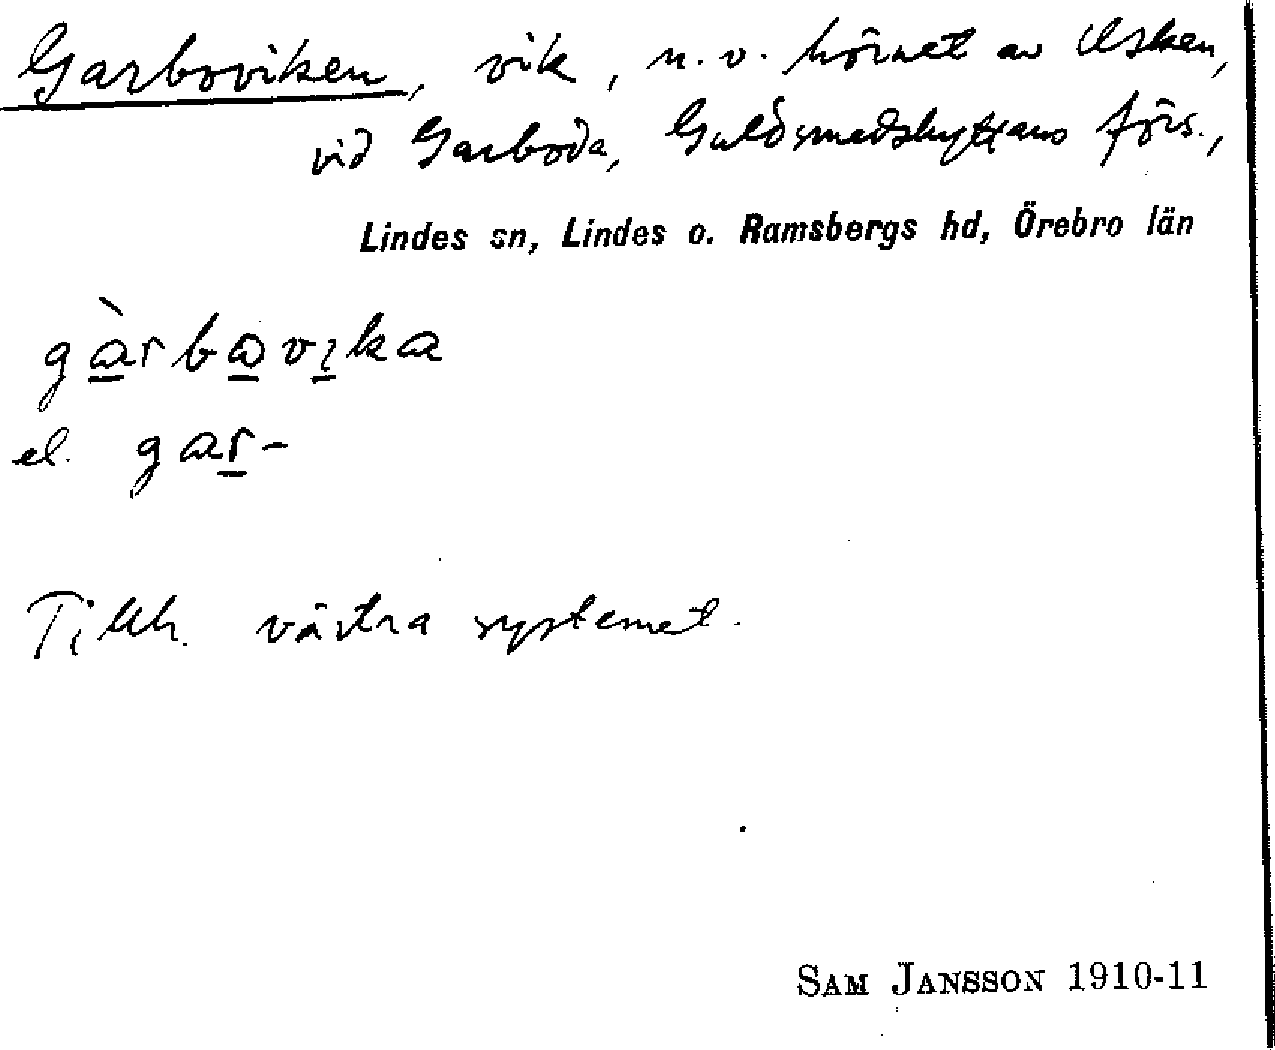 Garboviken, vik, n.v. hörnet av Usken,
vid Garboda, Guldsmedshyttans förs.,
Lindes sn, Lindes o. Ramsbergs hd, Örebro län
gàrbavika
el. gar-
Tillh. västra systemet.
SAM JANSSON 1910-11